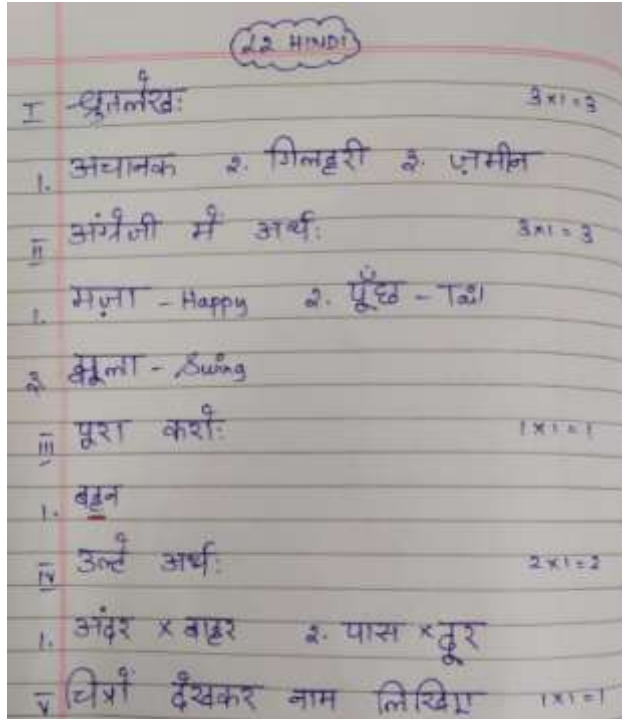 22 HINDI
I श्रुतलेख: 3x1=3
1. अचानक 2. गिलहरी 3. ज़मीन
II अंग्रेजी में अर्थ: 3x1=3
1. मज़ा - Happy 2. पूँछ - Tail
3. झूला - Swing
III पूरा करो: 1x1=1
1. बहन
IV उल्टे अर्थ: 2x1=2
1. अंदर x बाहर 2. पास x दूर
V चित्रों देखकर नाम लिखिए 1x1=1